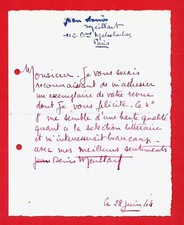 Jean Denis
Maillart
112 Bd Malesherbes
Paris
Monsieur - Je vous serais
reconnaissant de m'adresser
un exemplaire de votre revue
dont je vous félicite - le n°
8 me semble d'une haute qualité
quant a la selection littéraire
et m'interesserait beaucoup
avec mes meilleurs sentiments
Jean Denis Maillart
le 28 juin 44